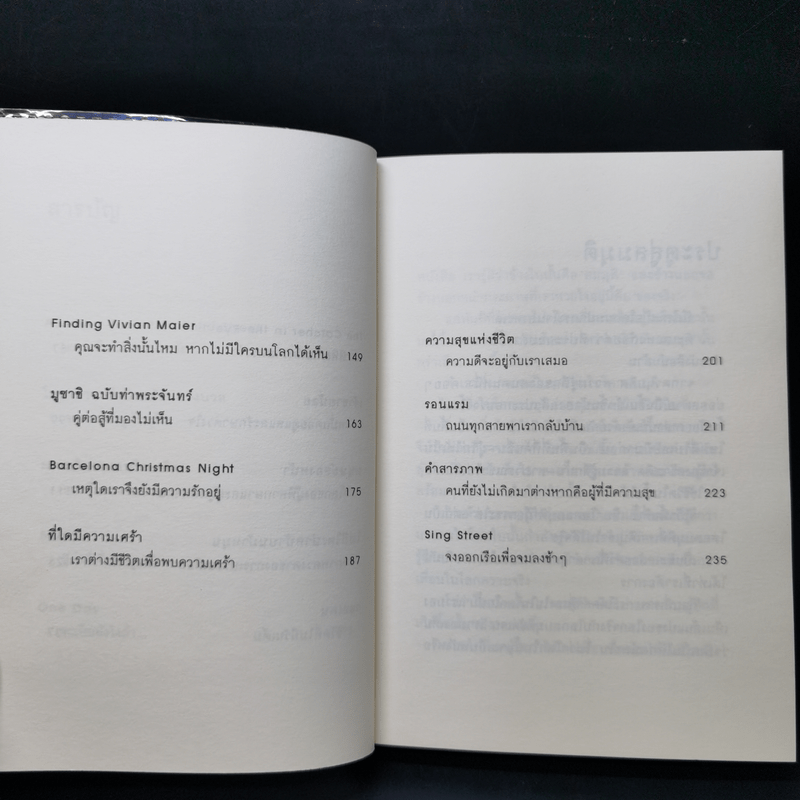 Finding Vivian Maier
คุณจะทำสิ่งนั้นไหม หากไม่มีใครบนโลกได้เห็น 149
มูซาชิ ฉบับท่าพระจันทร์
คู่ต่อสู้ที่มองไม่เห็น 163
Barcelona Christmas Night
เหตุใดเราจึงยังมีความรักอยู่ 175
ที่ใดมีความเศร้า
เราต่างมีชีวิตเพื่อพบความเศร้า 187
ความสุขแห่งชีวิต
ความดีจะอยู่กับเราเสมอ 201
รอนแรม
ถนนทุกสายพาเรากลับบ้าน 211
คำสารภาพ
คนที่ยังไม่เกิดมาต่างหากคือผู้ที่มีความสุข 223
Sing Street
จงออกเรือเพื่อจมลงช้าๆ 235